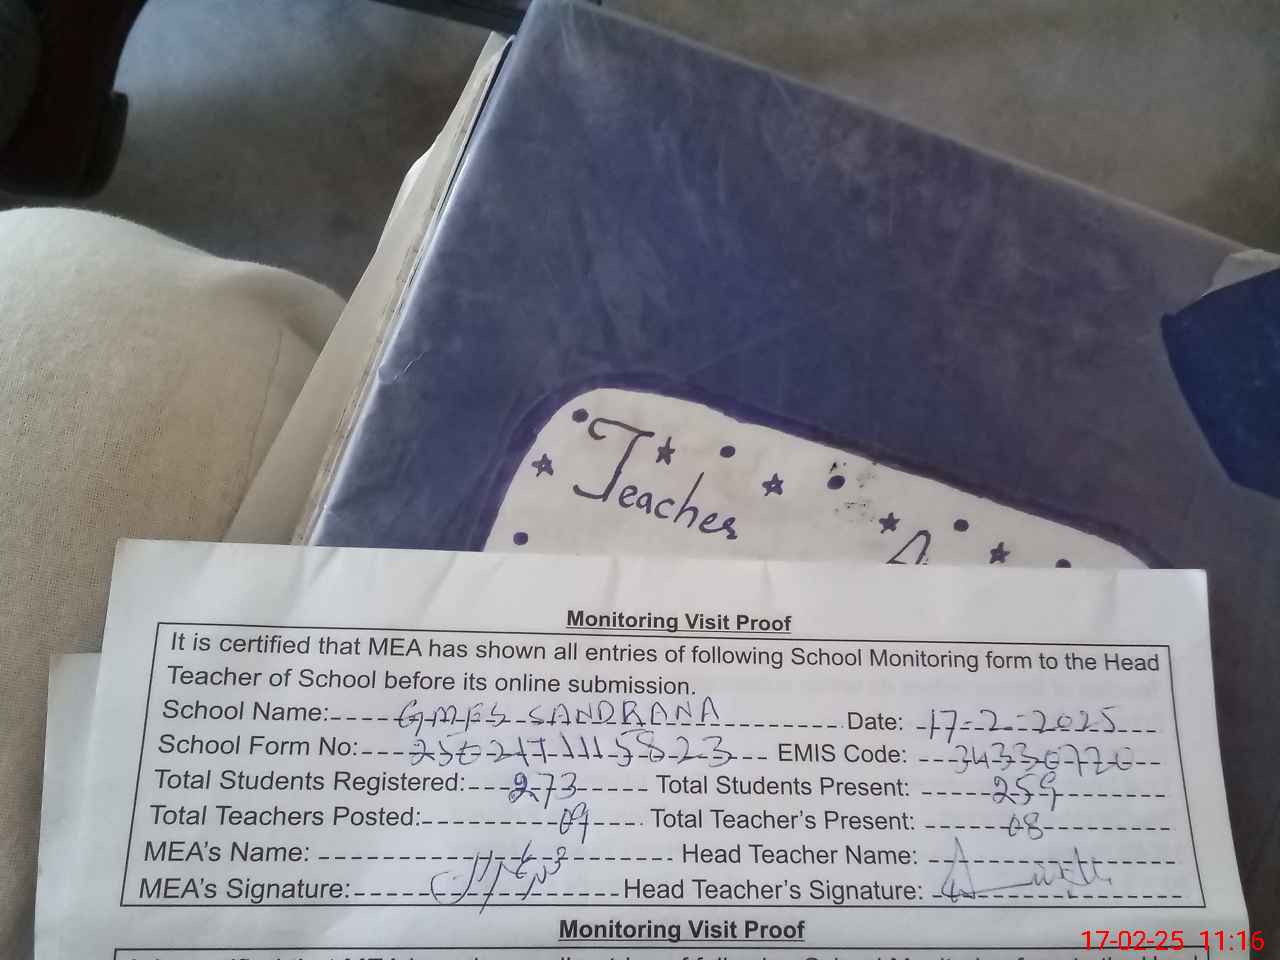 Teacher
A
Monitoring Visit Proof
It is certified that MEA has shown all entries of following School Monitoring form to the Head
Teacher of School before its online submission.
School Name: GMES SANDRANA Date: 17-2-2025
School Form No: 2502171115823 EMIS Code: 34330720
Total Students Registered: 273 Total Students Present: 259
Total Teachers Posted: 09 Total Teacher's Present: 08
MEA's Name: Head Teacher Name:
MEA's Signature: Head Teacher's Signature:
Monitoring Visit Proof
17-02-25 11:16